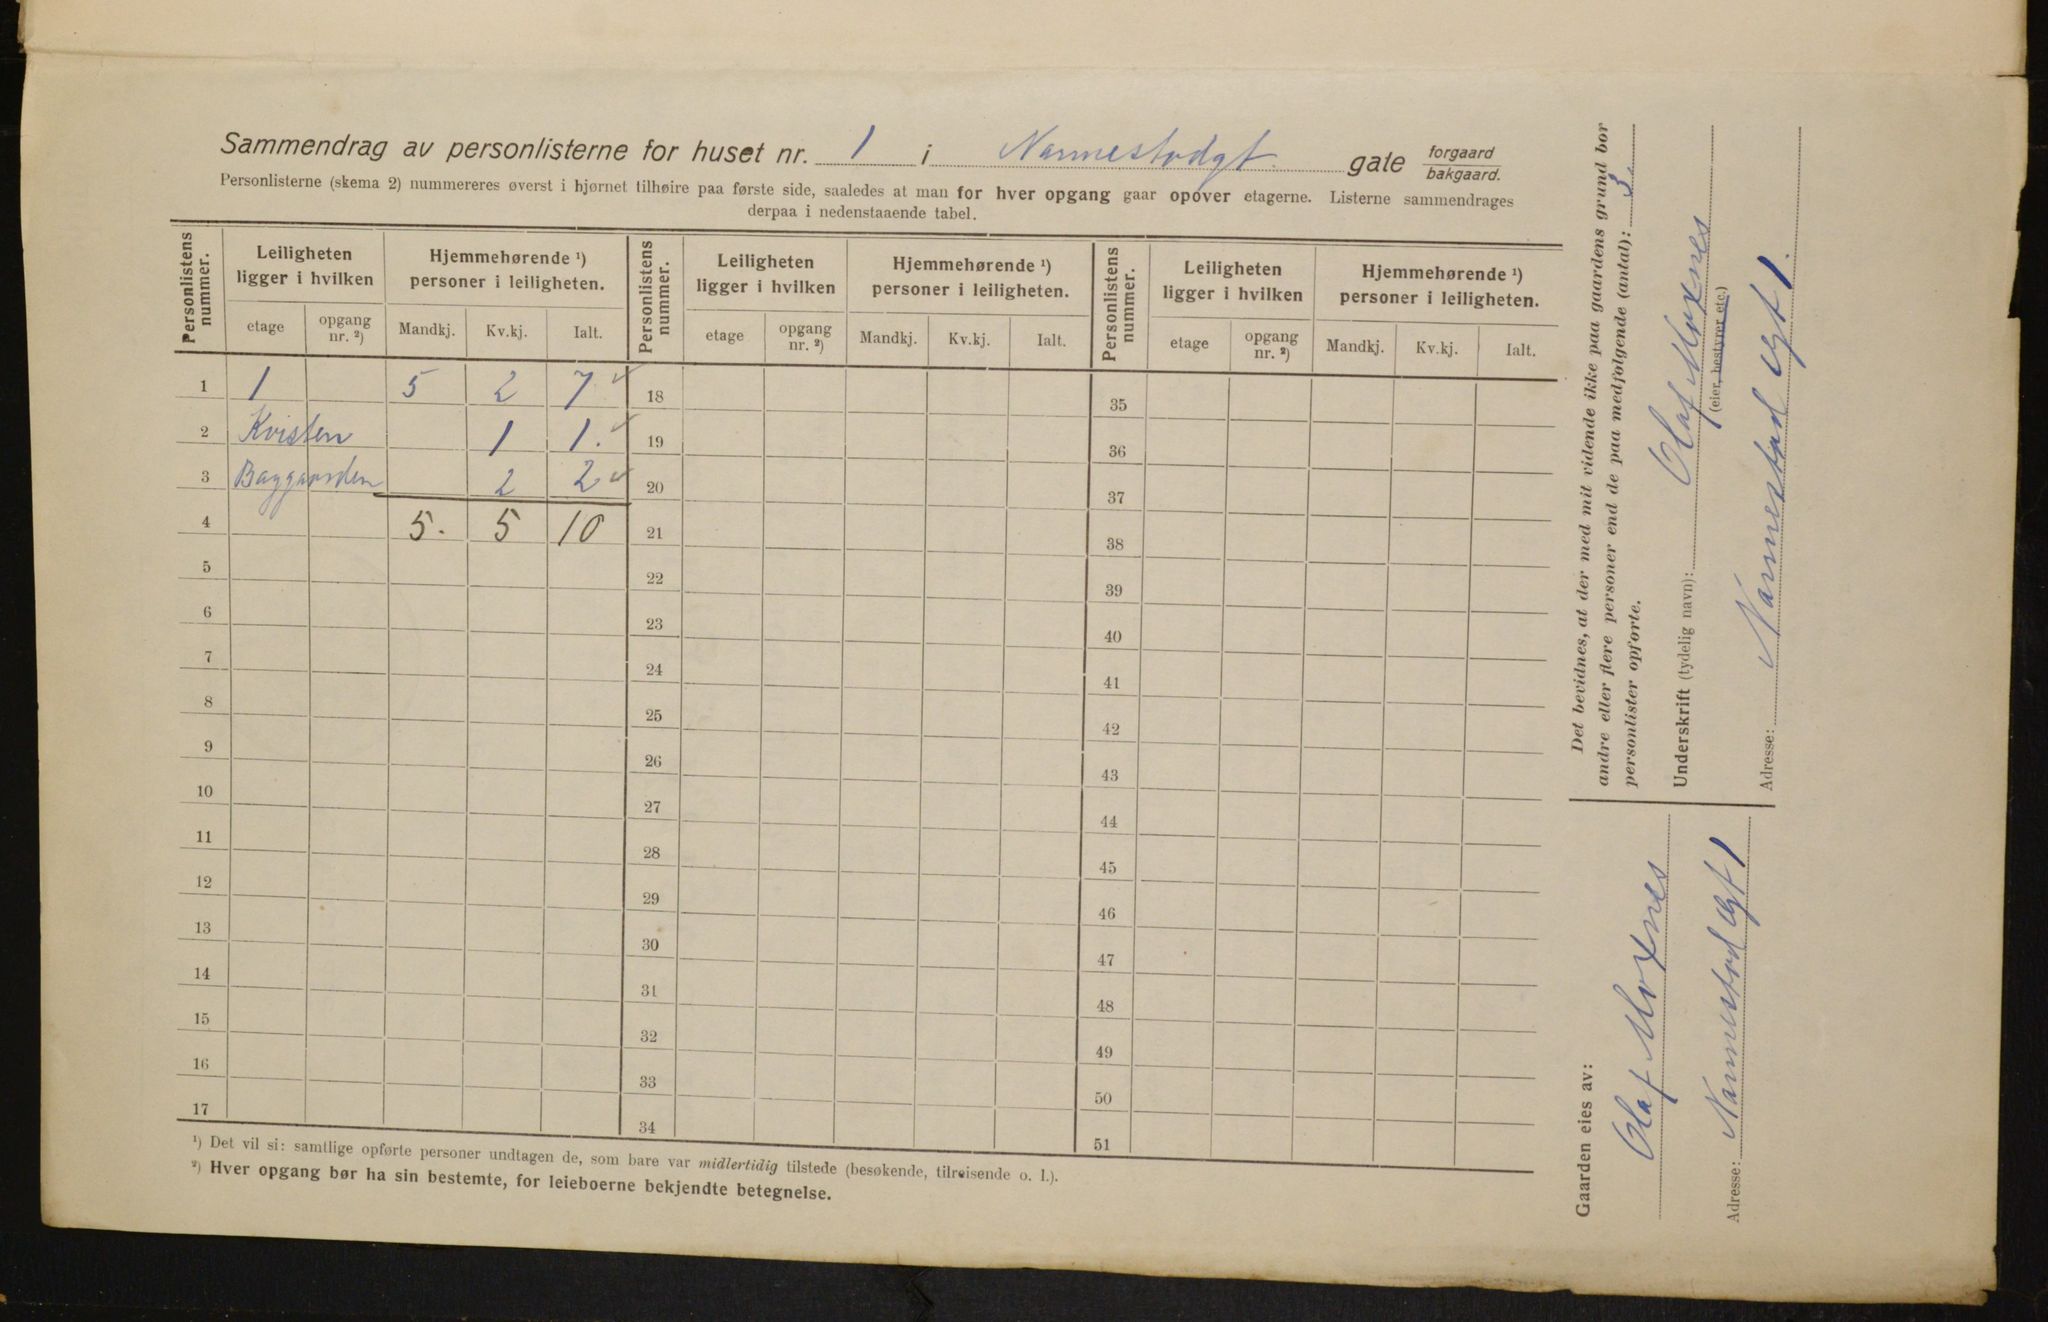 Sammendrag av personlisterne for huset nr. 1 i Nannestadgt. gate forgaard / bakgaard.
Personlisterne (skema 2) nummereres øverst i hjørnet tilhøire paa første side, saaledes at man for hver opgang gaar opover etagerne. Listerne sammendrages
derpaa i nedenstaaende tabel.
Personlistens nummer. Leiligheten ligger i hvilken Hjemmehørende ¹) personer i leiligheten. Personlistens nummer. Leiligheten ligger i hvilken Hjemmehørende ¹) personer i leiligheten. Personlistens nummer. Leiligheten ligger i hvilken Hjemmehørende ¹) personer i leiligheten.
etage opgang nr. ²) Mandkj. Kv.kj. Ialt. etage opgang nr. ²) Mandkj. Kv.kj. Ialt. etage opgang nr. ²) Mandkj. Kv.kj. Ialt.
1 1 5 2 7 ✓ 18 35
2 Kvisten 1 1. ✓ 19 36
3 Baggaarden 2 2 ✓ 20 37
4 5. 5 10 21 38
5 22 39
6 23 40
7 24 41
8 25 42
9 26 43
10 27 44
11 28 45
12 29 46
13 30 47
14 31 48
15 32 49
16 33 50
17 34 51
¹) Det vil si: samtlige opførte personer undtagen de, som bare var midlertidig tilstede (besøkende, tilreisende o. l.).
²) Hver opgang bør ha sin bestemte, for leieboerne bekjendte betegnelse.
Det bevidnes, at der med mit vidende ikke paa gaardens grund bor
andre eller flere personer end de paa medfølgende (antal): 3.
personlister opførte.
Underskrift (tydelig navn): Olaf Moxnes
(eier, bestyrer etc.)
Adresse: Nannestad Gt 1.
Gaarden eies av:
Olaf Moxnes
Adresse: Nannestad Gt 1